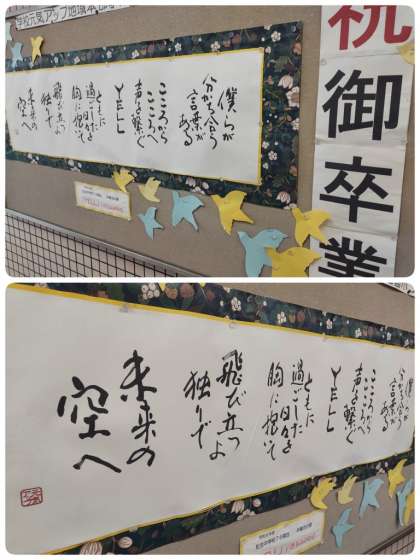 学校元気アップ地域本部
祝御卒業
僕らが
分かち合う
言葉が
ある
こころから
こころへ
声を繋ぐ
YELL
ともに
過ごした
日々を
胸に抱いて
飛び立つよ
独りで
未来の
空へ
分かち合う
言葉が
ある
こころから
こころへ
声を繋ぐ
YELL
ともに
過ごした
日々を
胸に抱いて
飛び立つよ
独りで
未来の
空へ